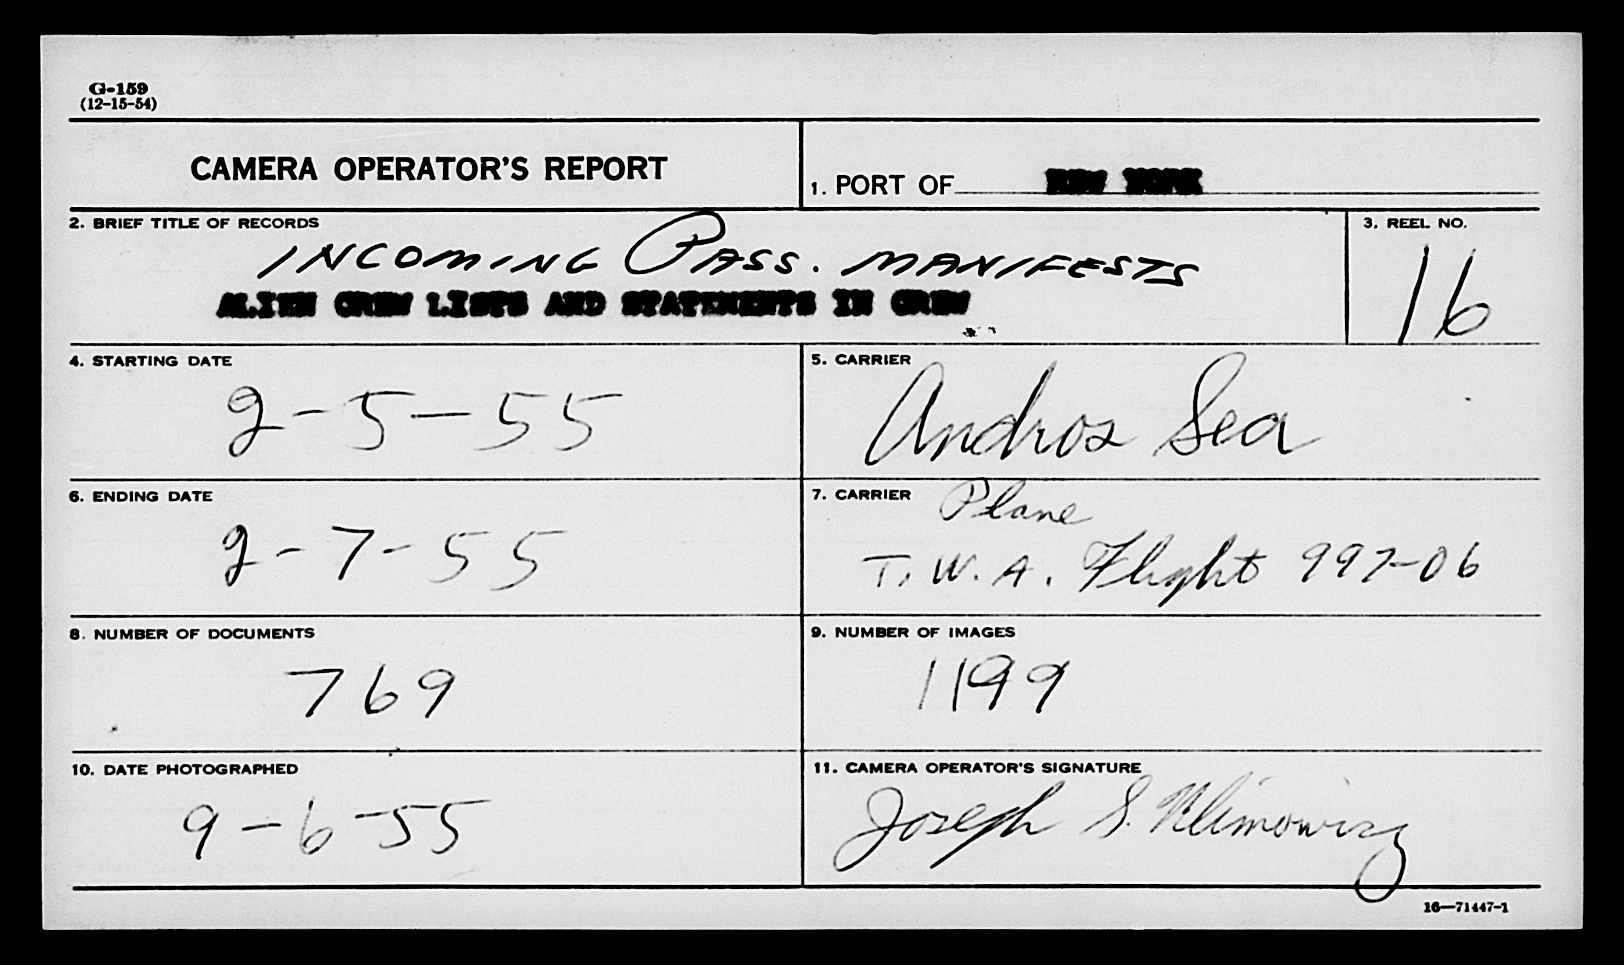 G-159
(12-15-54)
CAMERA OPERATOR'S REPORT
1. PORT OF NEW YORK
2. BRIEF TITLE OF RECORDS
INCOMING PASS. MANIFESTS
ALIEN CREW LISTS AND STATEMENTS IN CREW
3. REEL NO.
16
4. STARTING DATE
2-5-55
5. CARRIER
Andros Sea
6. ENDING DATE
2-7-55
7. CARRIER Plane
T.W.A. Flight 997-06
8. NUMBER OF DOCUMENTS
769
9. NUMBER OF IMAGES
1199
10. DATE PHOTOGRAPHED
9-6-55
11. CAMERA OPERATOR'S SIGNATURE
Joseph S. Klimowicz
16—71447-1